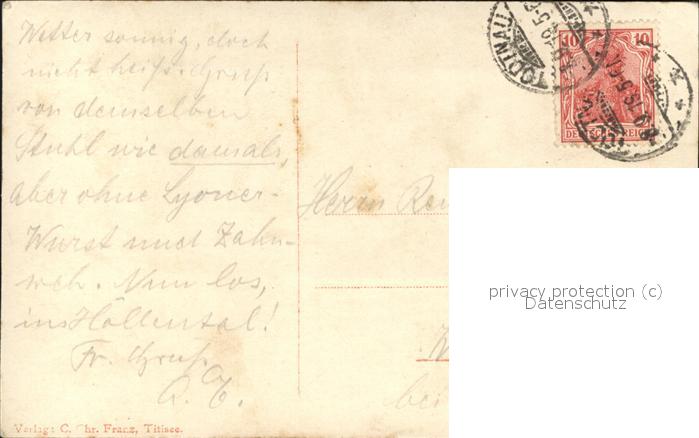 Wetter sonnig, doch
nicht heiß. Gruß
von demselben
Stuhl wie damals,
aber ohne Lyoner-
Wurst und Zahn-
weh. Nun los,
ins Höllental!
Fr. Gruß
Herrn
bei
10 10
DEUTSCHES REICH
TODTNAU
privacy protection (c)
Datenschutz
Verlag: C. Chr. Franz, Titisee.